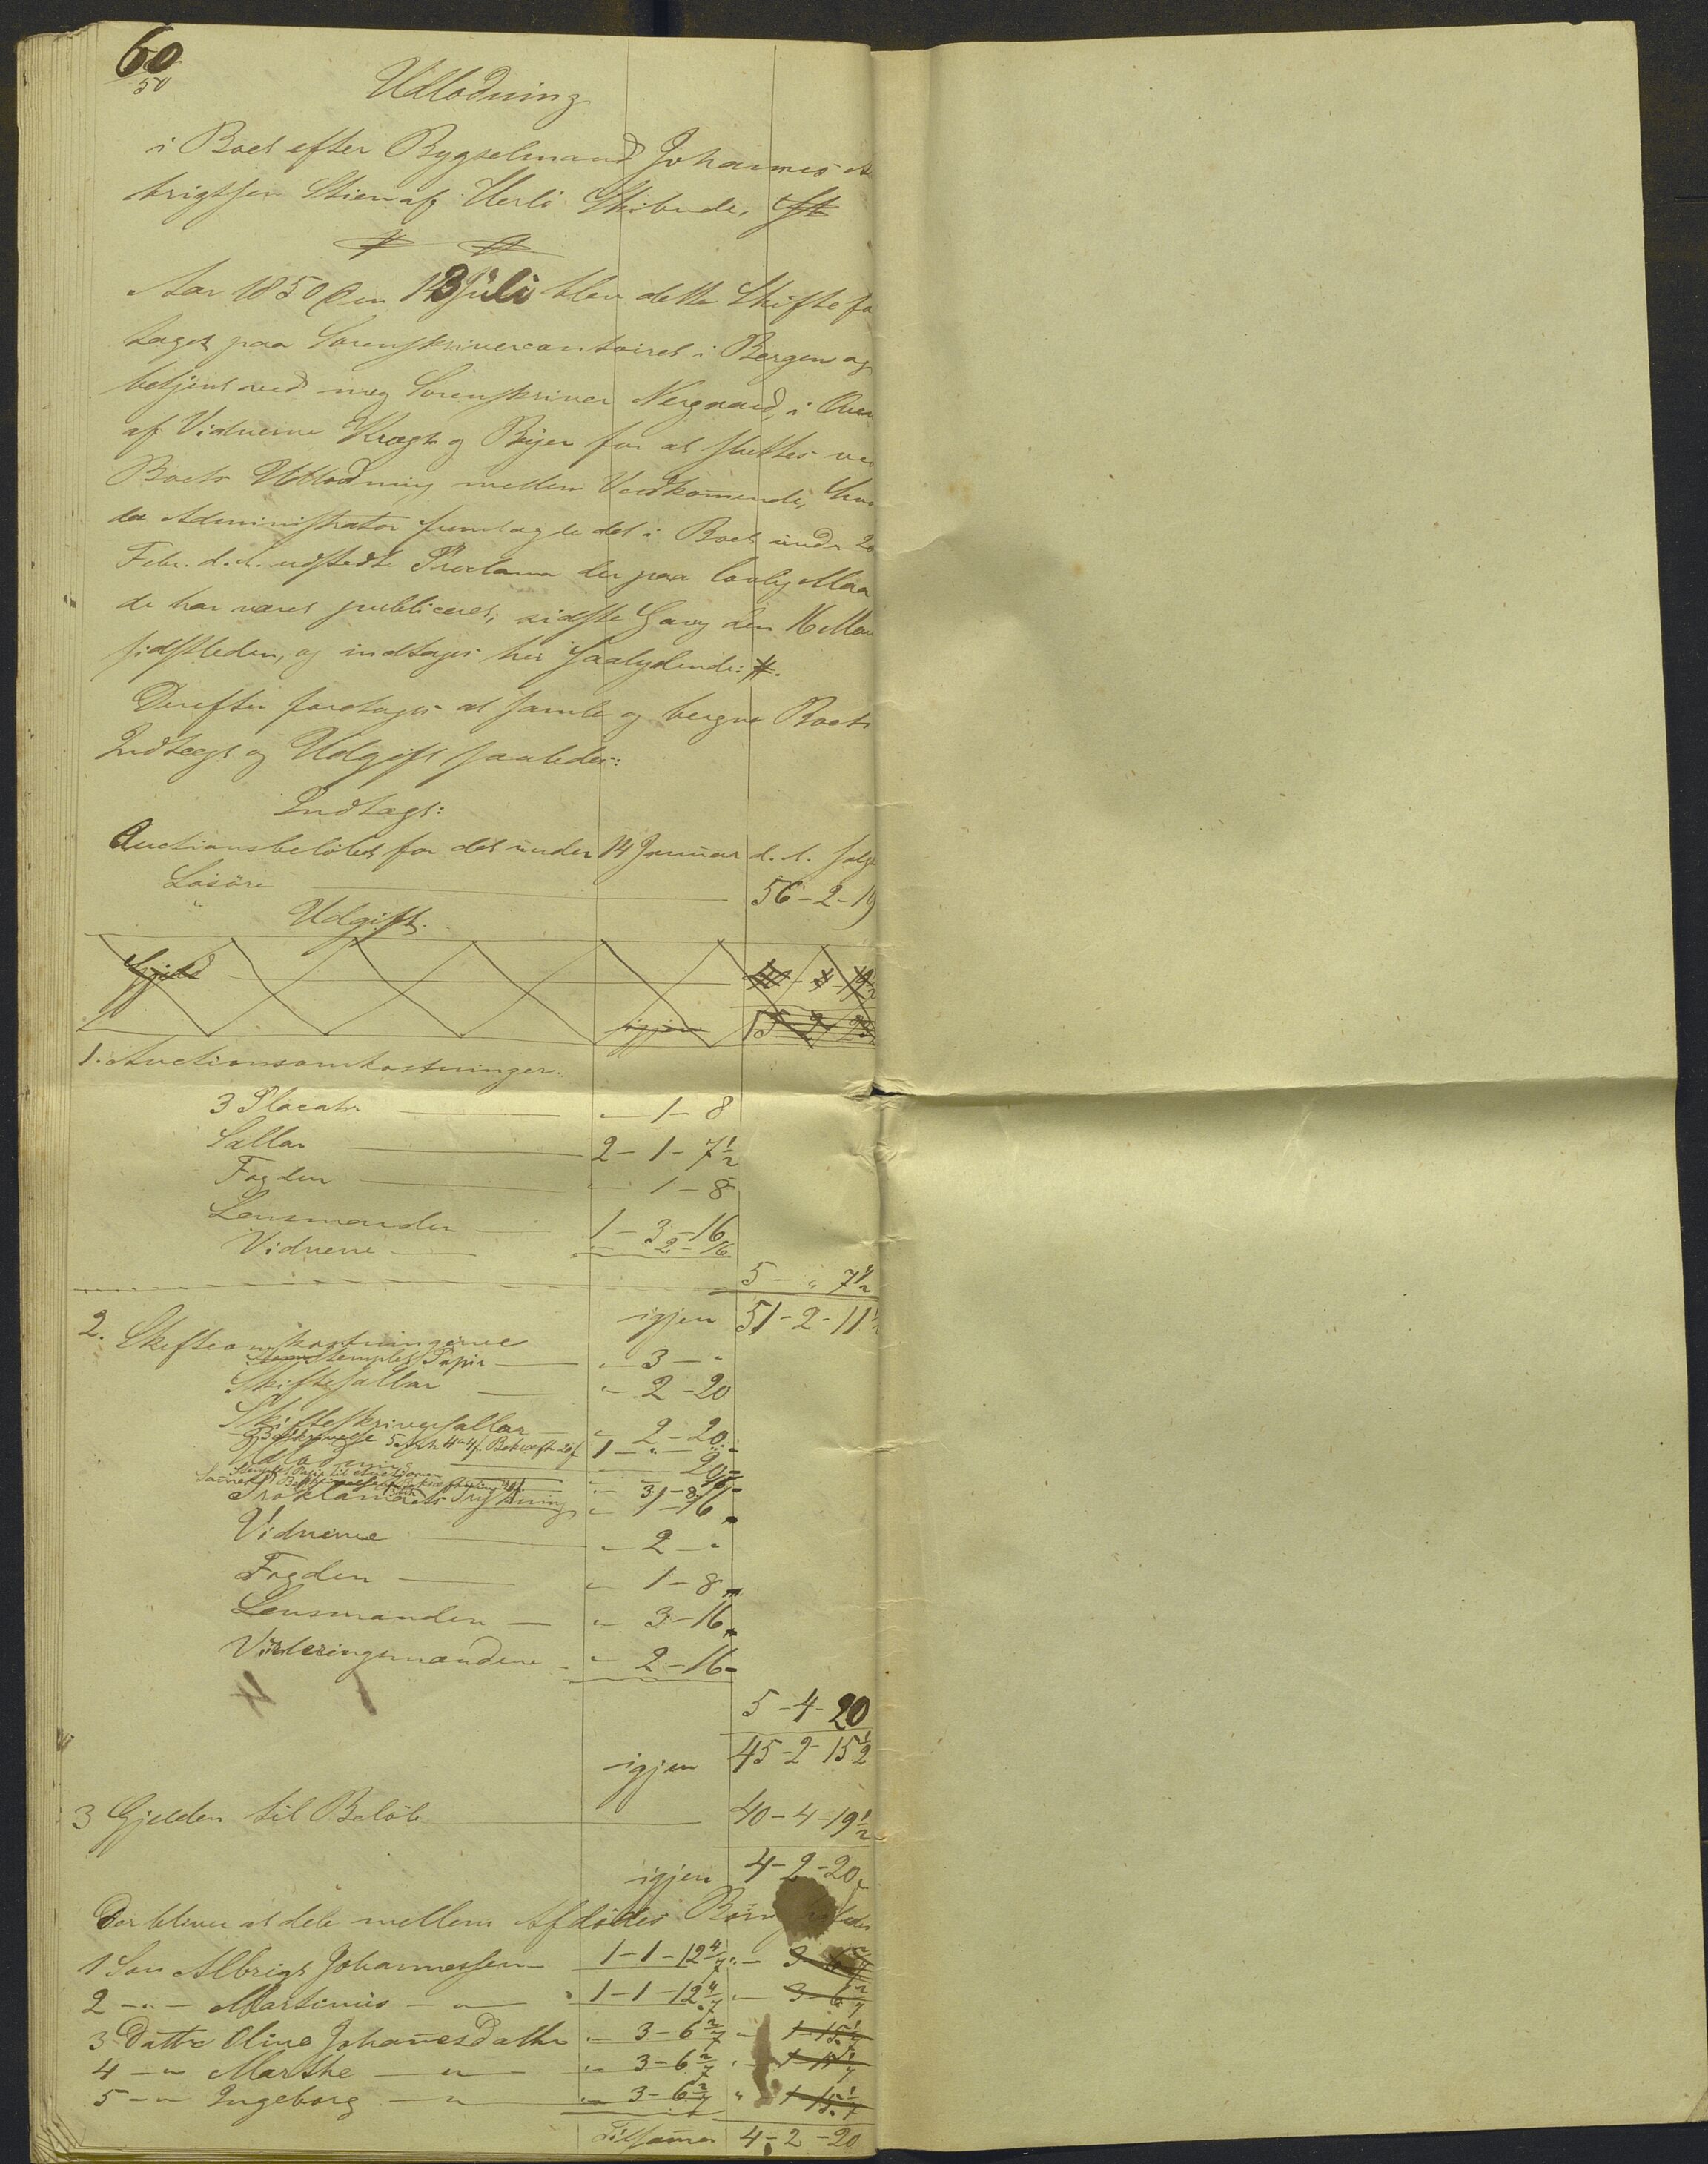 60
50
Udlodning
i Boet efter Bygselmand Johannes Al
brigtsen Stien af Herlö Skibrede,
Aar 1850 den 13 Juli blev dette Skifte fo
taget paa Sorenskrivercontoiret i Bergen og
betjent ved mig Sorenskriver Nergaard, i Over
af Vidnerne Kragh og Beyer for at sluttes ved
Boets Udlodning mellem Vedkommende, hvor
da Administrator fremlagde det i Boet under 20
Febr. d. A. udstedte Proclama der paa lovlig Maa
de har været publiceret, sidste Gang den 16 Mar
sidstleden, og indtages her saalydende: #.
Derefter foretoges at samle og beregne Boets
Indtægt og Udgift saaledes:
Indtægt:
Auctionsbeløbet for det under 14 Januar d. A. solgte
Løsøre 56-2-19
Udgift.
Gjeld
igjen
1. Auctionsomkostninger.
3 Placater " 1-8
Sallar 2-1-7½
Fogden " 1-8
Lensmanden 1-3-16
Vidnerne " 2-16
5 - " 7½
igjen 51-2-11½
2. Skifteomkostningerne
stemplet Papir " 3 - "
Skiftesallar " 2-20
Skifteskriversallar " 2-20
1 - " -
Udlodning 20
Proklamaets Trykning " 1-16
Vidnerne " 2 - "
Fogden " 1-8
Lensmanden " 3-16
Vurderingsmændene " 2-16
5-4-20
igjen 45-2-15½
3 Gjelden til Beløb 40-4-19½
igjen 4-2-20
Der bliver at dele mellem Afdødes Børn
1 Søn Albrigt Johannessen 1-1-12 4/7 " 3-6 2/7
2 -"- Martinus -"- 1-1-12 4/7 " 3-6 2/7
3 Datter Oline Johannesdatter " 3-6 2/7 " 1-15 1/7
4 -"- Marthe -"- " 3-6 2/7 " 1-15 1/7
5 -"- Ingeborg -"- " 3-6 2/7 " 1-15 1/7
Tilsammen 4-2-20